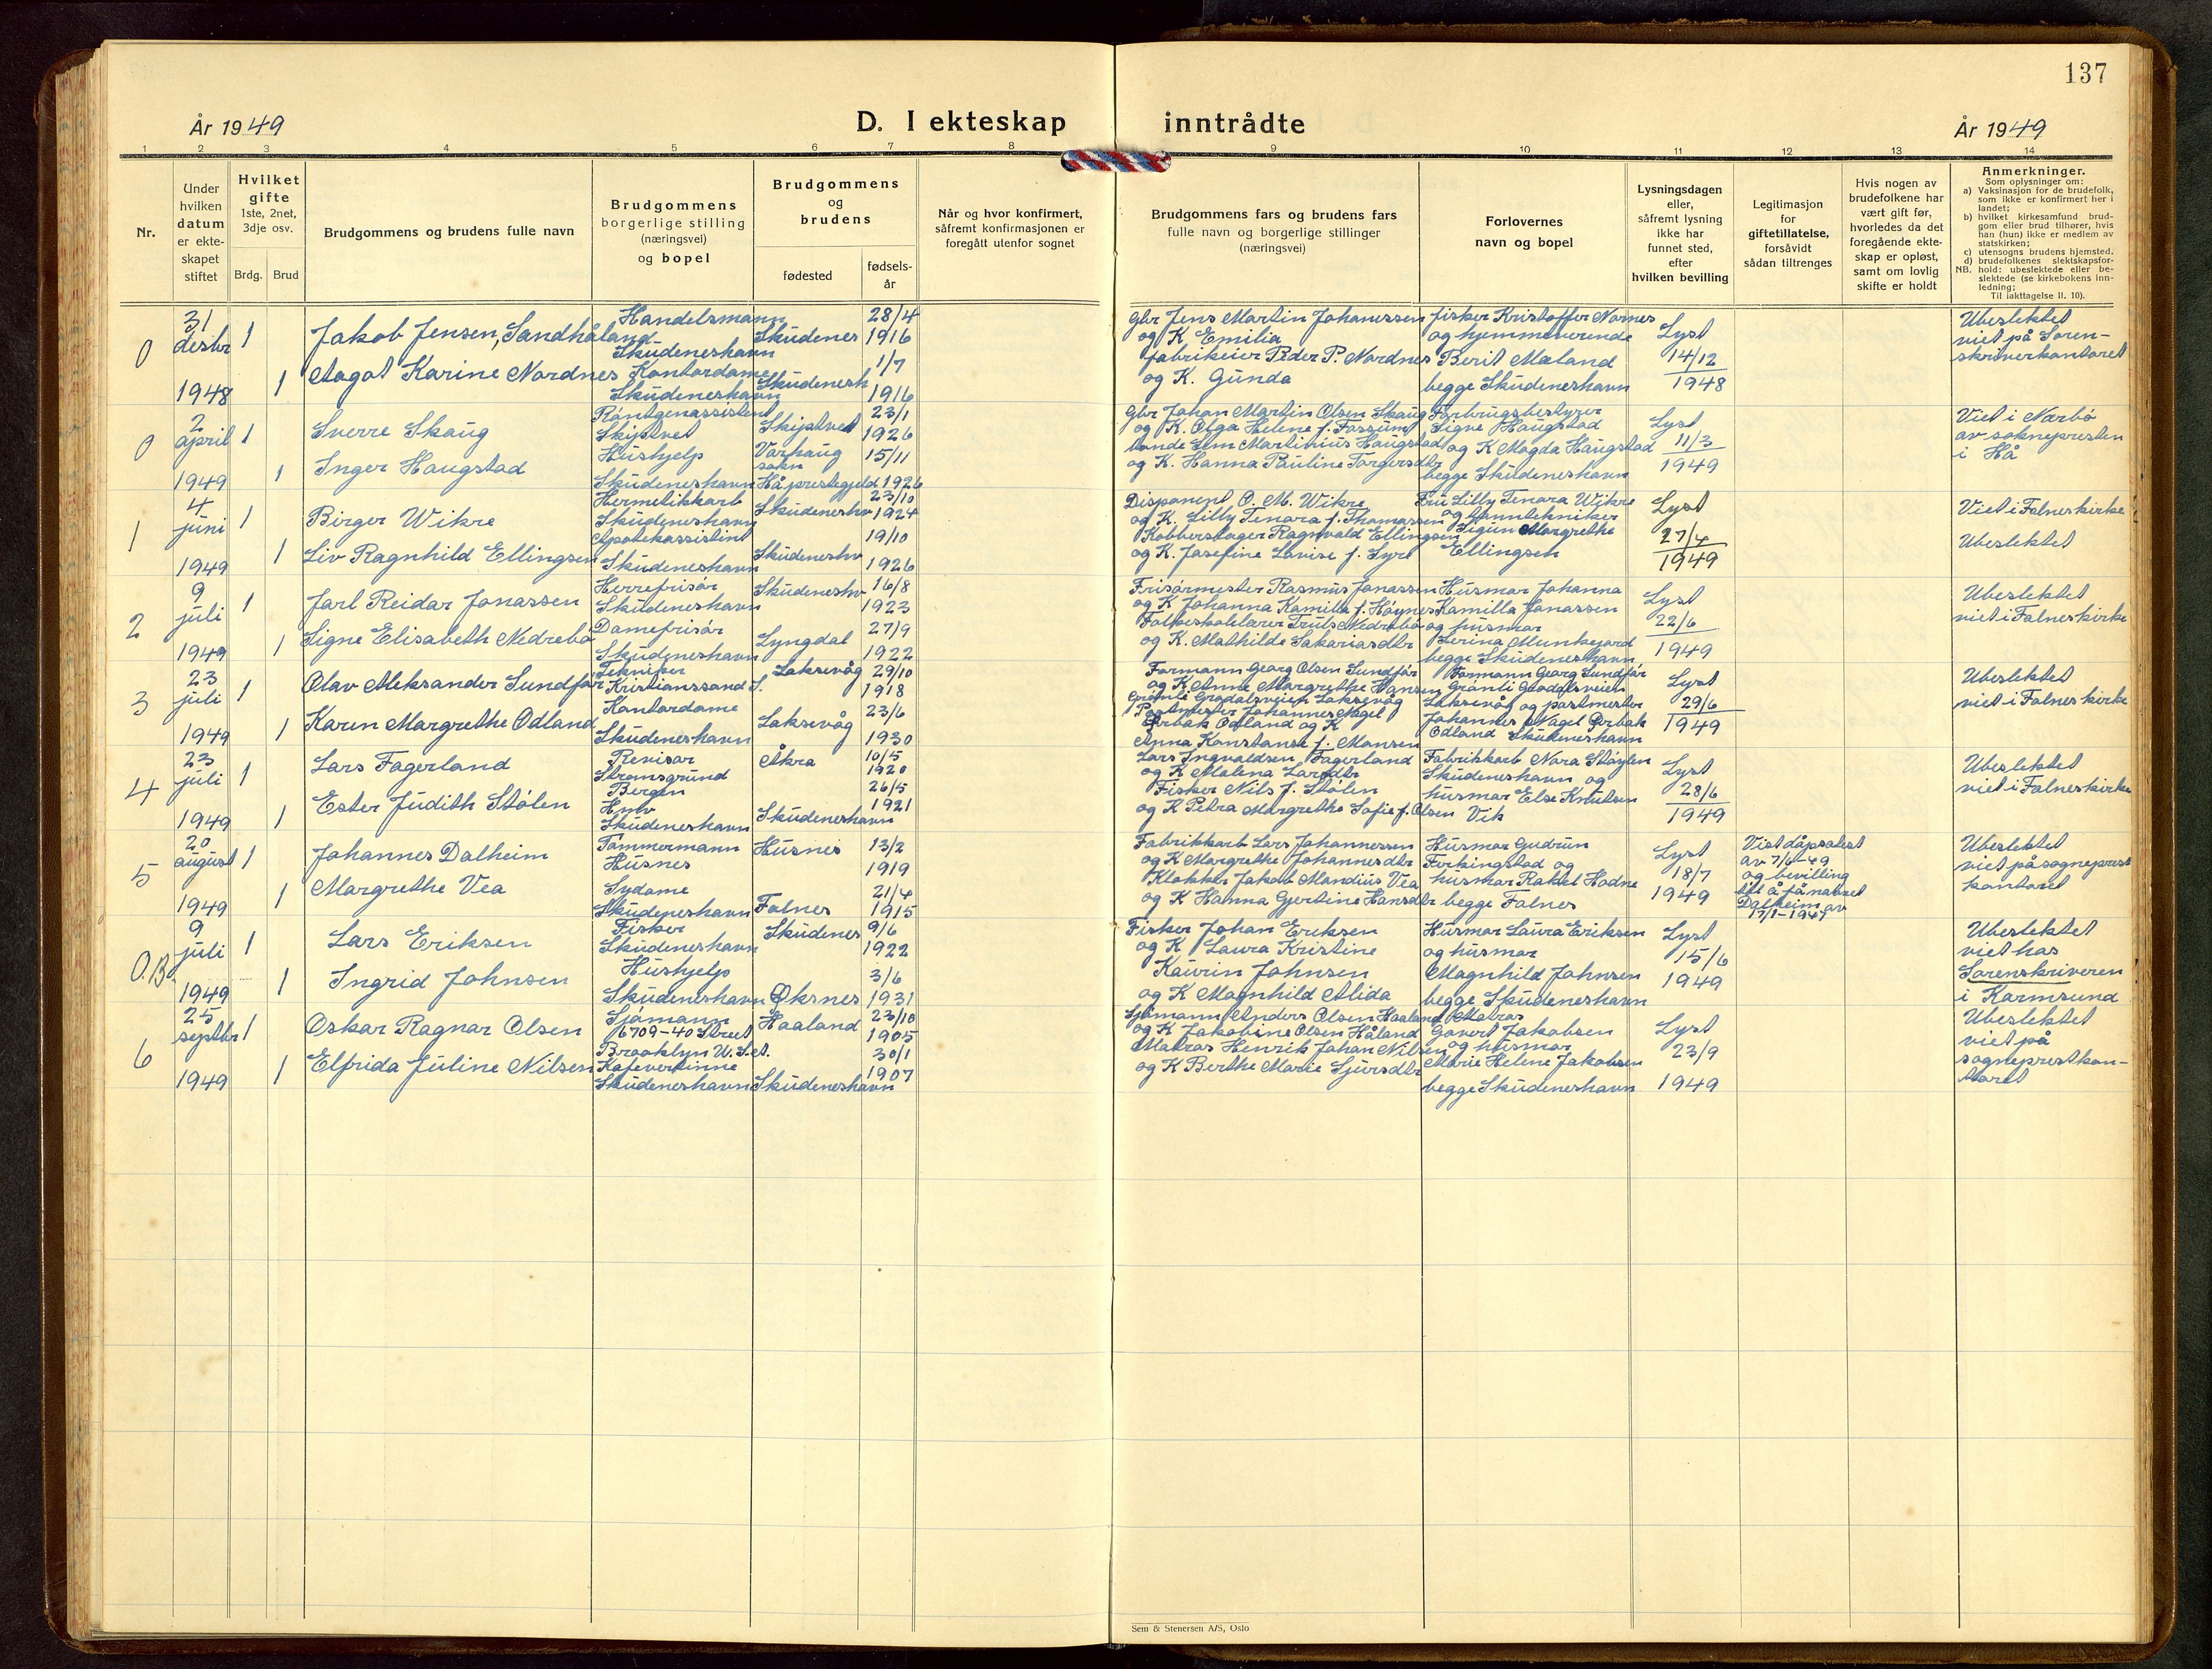 137
År 1949
D. I ekteskap inntrådte
År 1949
1 2 3 4 5 6 7 8 9 10 11 12 13 14
Nr.
Under
hvilken
datum
er ekte-
skapet
stiftet
Hvilket
gifte
1ste, 2net,
3dje osv.
Brdg.
Brud
Brudgommens og brudens fulle navn
Brudgommens
borgerlige stilling
(næringsvei)
og bopel
Brudgommens
og
brudens
fødested
fødsels-
år
Når og hvor konfirmert,
såfremt konfirmasjonen er
foregått utenfor sognet
Brudgommens fars og brudens fars
fulle navn og borgerlige stillinger
(næringsvei)
Forlovernes
navn og bopel
Lysningsdagen
eller,
såfremt lysning
ikke har
funnet sted,
efter
hvilken bevilling
Legitimasjon
for
giftetillatelse,
forsåvidt
sådan tiltrenges
Hvis nogen av
brudefolkene har
vært gift før,
hvorledes da det
foregående ekte-
skap er opløst,
samt om lovlig
skifte er holdt
Anmerkninger.
Som oplysninger om:
a) Vaksinasjon for de brudefolk,
som ikke er konfirmert her i
landet;
b) hvilket kirkesamfund brud-
gom eller brud tilhører, hvis
han (hun) ikke er medlem av
statskirken;
c) utensogns brudens hjemsted.
d) brudefolkenes slektskapsfor-
NB. hold: ubeslektede eller be-
slektede (se kirkebokens inn-
ledning;
Til iakttagelse II. 10).
0
31
desbr
1948
1
1
Jakob Jensen, Sandhåland
Aagot Karine Nordnes
Handelsmann
Skudeneshavn
Kontordame
Skudeneshavn
Skudenes
Skudenesh
28/4
1916
1/7
1916
Gbr Jens Martin Johanessen
og K. Emilia
fabrikeier Peder P. Nordnes
og K. Gunda
fisker Kristoffer Nornes
og hjemmeværende
Berit Mæland
begge Skudeneshavn
Lyst
14/12
1948
Ubeslektet
viet på Soren-
skriverkontoret
0
2
april
1949
1
1
Sverre Skaug
Inger Haugstad
Røntgenassistent
Skiptvet
Hushjelp
Skudeneshavn
Skiptvet
Varhaug
sokn
Hå prestegjeld
23/1
1926
15/11
1926
Gbr Johan Martin Olsen Skaug
og K. Olga Helene f. Fossum
Martinius Haugstad
og K. Hanna Pauline Torgersdtr
Forbrugsbestyrer
Signe Haugstad
og K Magda Haugstad
begge Skudeneshavn
Lyst
11/3
1949
Viet i Nærbø
av soknepresten
i Hå
1
4
juni
1949
1
1
Birger Wikre
Liv Ragnhild Ellingsen
Hermetikkarb
Skudeneshavn
Apotekassistent
Skudeneshavn
Skudeneshv
Skudeneshv
23/10
1924
19/10
1926
Disponent O. M. Wikre
og K. Lilly Tenora f. Thomassen
Kobberslager Ragnvald Ellingsen
og K. Josefine Lovise f. Syre
Fru Lilly Tenora Wikre
og tanntekniker
Sigun Margrethe
Ellingsen
Lyst
27/4
1949
Viet i Falneskirke
Ubeslektet
2
9
juli
1949
1
1
Jarl Reidar Jonassen
Signe Elisabeth Nedrebø
Herrefrisør
Skudeneshavn
Damefrisør
Skudeneshavn
Skudeneshv
Lyngdal
16/8
1923
27/9
1922
Frisørmester Rasmus Jonassen
og K Johanna Kamilla f. Høynes
Folkeskolelærer Truls Nedrebø
og K. Mathilde Sakariasdtr
Husmor Johanna
Kamilla Jonassen
og husmor
Serina Munkejord
begge Skudeneshavn
Lyst
22/6
1949
Ubeslektet
viet i Falneskirke
3
23
juli
1949
1
1
Olav Aleksander Sundfør
Karen Margrethe Odland
Tekniker
Kristianssand S.
Kontordame
Skudeneshavn
Laksevåg
Laksevåg
29/10
1918
23/6
1930
Formann Georg Olsen Sundfør
og K Anne Margrethe Hansen
Postmester Johannes Nagel
Odland og K
Anna Konstanse f. Monsen
Formann Georg Sundfør
Laksevåg og postmester
Johannes Nagel
Odland Skudeneshavn
Lyst
29/6
1949
Ubeslektet
viet i Falnes kirke
4
23
juli
1949
1
1
Lars Fagerland
Ester Judith Stølen
Revisor
Strømsgrund
Bergen
Hmv
Skudeneshavn
Åkra
Skudeneshavn
10/5
1920
26/5
1921
Lars Ingvaldsen Fagerland
og K Malena Larsdtr
Fisker Nils J. Stølen
og K Petra Margrethe Sofie f. Olsen
Fabrikkarb Nora Støylen
Skudeneshavn og
husmor Else Knutsen
Vik
Lyst
28/6
1949
Ubeslektet
viet i Falneskirke
5
20
august
1949
1
1
Johannes Dalheim
Margrethe Vea
Tømmermann
Husnes
Sydame
Skudeneshavn
Husnes
Falnes
13/2
1919
21/4
1915
Fabrikkarb Lars Johannessen
og K Margrethe Johannesdtr
Klokker Jakob Mandius Vea
og K Hanna Gjertine Hansdtr
Husmor Gudrun
Ferkingstad og
husmor Rakel Hodne
begge Falnes
Lyst
18/7
1949
Vist dåpsatest
av 7/6-49
og bevilling
til å få navnet
Dalheim av
17/1-1947
Ubeslektet
viet på sogneprest
kontoret
O.B.
9
juli
1949
1
1
Lars Eriksen
Ingrid Johnsen
Fisker
Skudeneshavn
Hushjelp
Skudeneshavn
Skudenes
Øksnes
9/6
1922
3/6
1931
Fisker Johan Eriksen
og K Laura Kristine
Kaurin Johnsen
og K Magnhild Alida
Husmor Laura Eriksen
og husmor
Magnhild Johnsen
begge Skudeneshavn
Lyst
15/6
1949
Ubeslektet
viet hos
Sorenskriveren
i Karmsund
6
25
septbr
1949
1
1
Oskar Ragnar Olsen
Elfrida Juline Nilsen
Sjømann
6709-40 Street
Brooklyn U.S.A.
Kafevertinne
Skudeneshavn
Haaland
Skudeneshavn
23/10
1905
30/1
1907
Sjømann Anders Olsen Haaland
og K Jakobine Olsen Håland
Matros Henrik Johan Nilsen
og K Berthe Marie Sjursdtr
Matros
Govert Jakobsen
og husmor
Marie Helene Jakobsen
begge Skudeneshavn
Lyst
23/9
1949
Ubeslektet
viet på
sogneprestkon-
toret
Sem & Stenersen A/S, Oslo